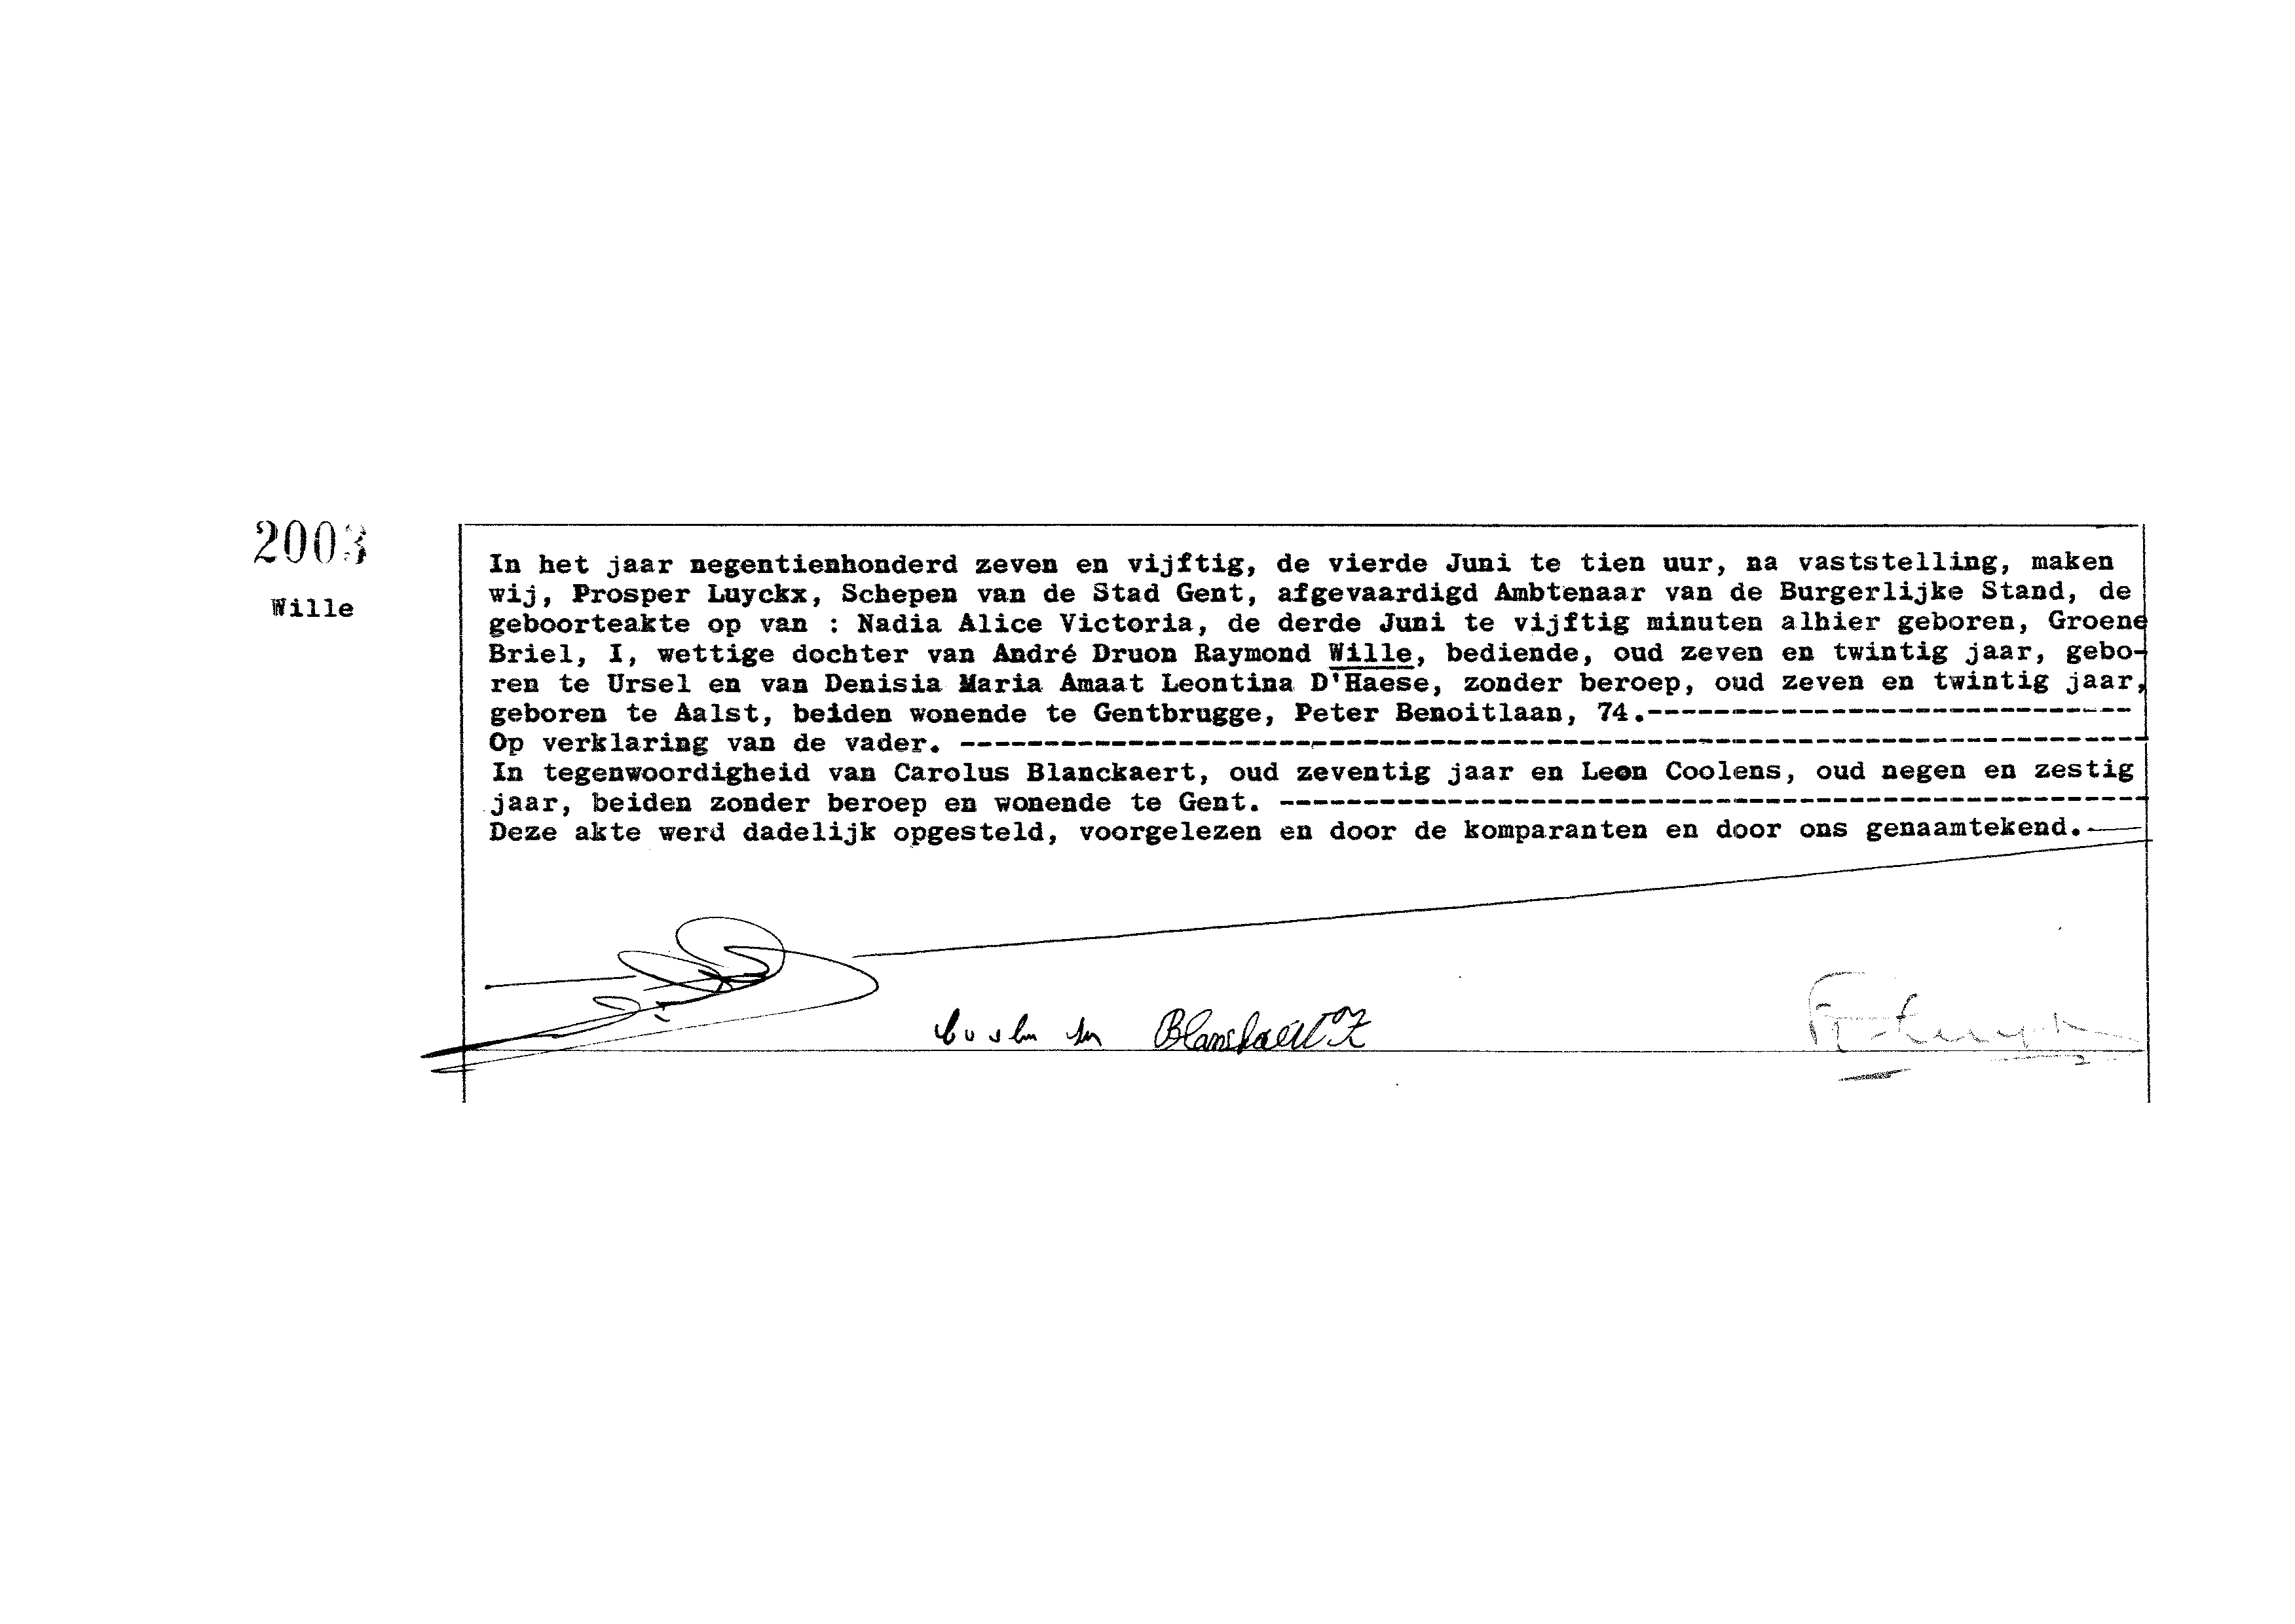 2003
Wille
In het jaar negentienhonderd zeven en vijftig, de vierde Juni te tien uur, na vaststelling, maken
wij, Prosper Luyckx, Schepen van de Stad Gent, afgevaardigd Ambtenaar van de Burgerlijke Stand, de
geboorteakte op van : Nadia Alice Victoria, de derde Juni te vijftig minuten alhier geboren, Groene
Briel, I, wettige dochter van André Druon Raymond Wille, bediende, oud zeven en twintig jaar, gebo-
ren te Ursel en van Denisia Maria Amaat Leontina D'Haese, zonder beroep, oud zeven en twintig jaar,
geboren te Aalst, beiden wonende te Gentbrugge, Peter Benoitlaan, 74.-----------------------------
Op verklaring van de vader. ----------------------------------------------------------------------
In tegenwoordigheid van Carolus Blanckaert, oud zeventig jaar en Leon Coolens, oud negen en zestig
jaar, beiden zonder beroep en wonende te Gent. ---------------------------------------------------
Deze akte werd dadelijk opgesteld, voorgelezen en door de komparanten en door ons genaamtekend.